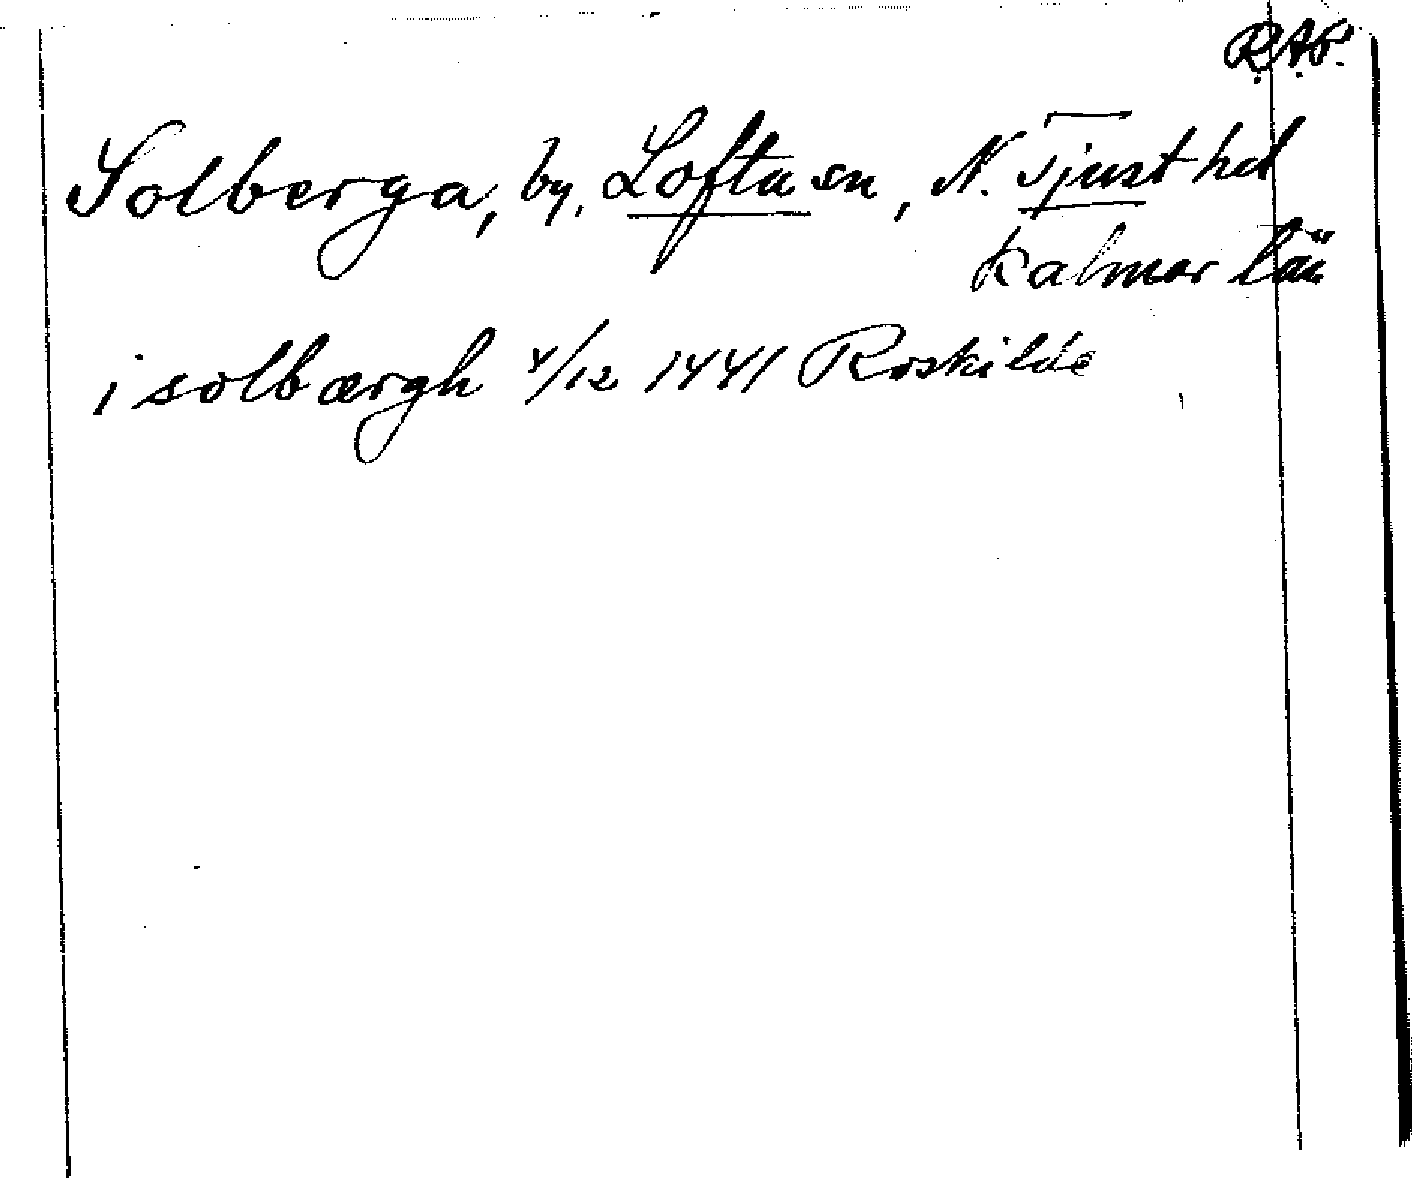 R.A.P.
Solberga, by, Lofta sn, N. Tjust hd
Kalmar län
i solbærgh 4/12 1441 Roskilde